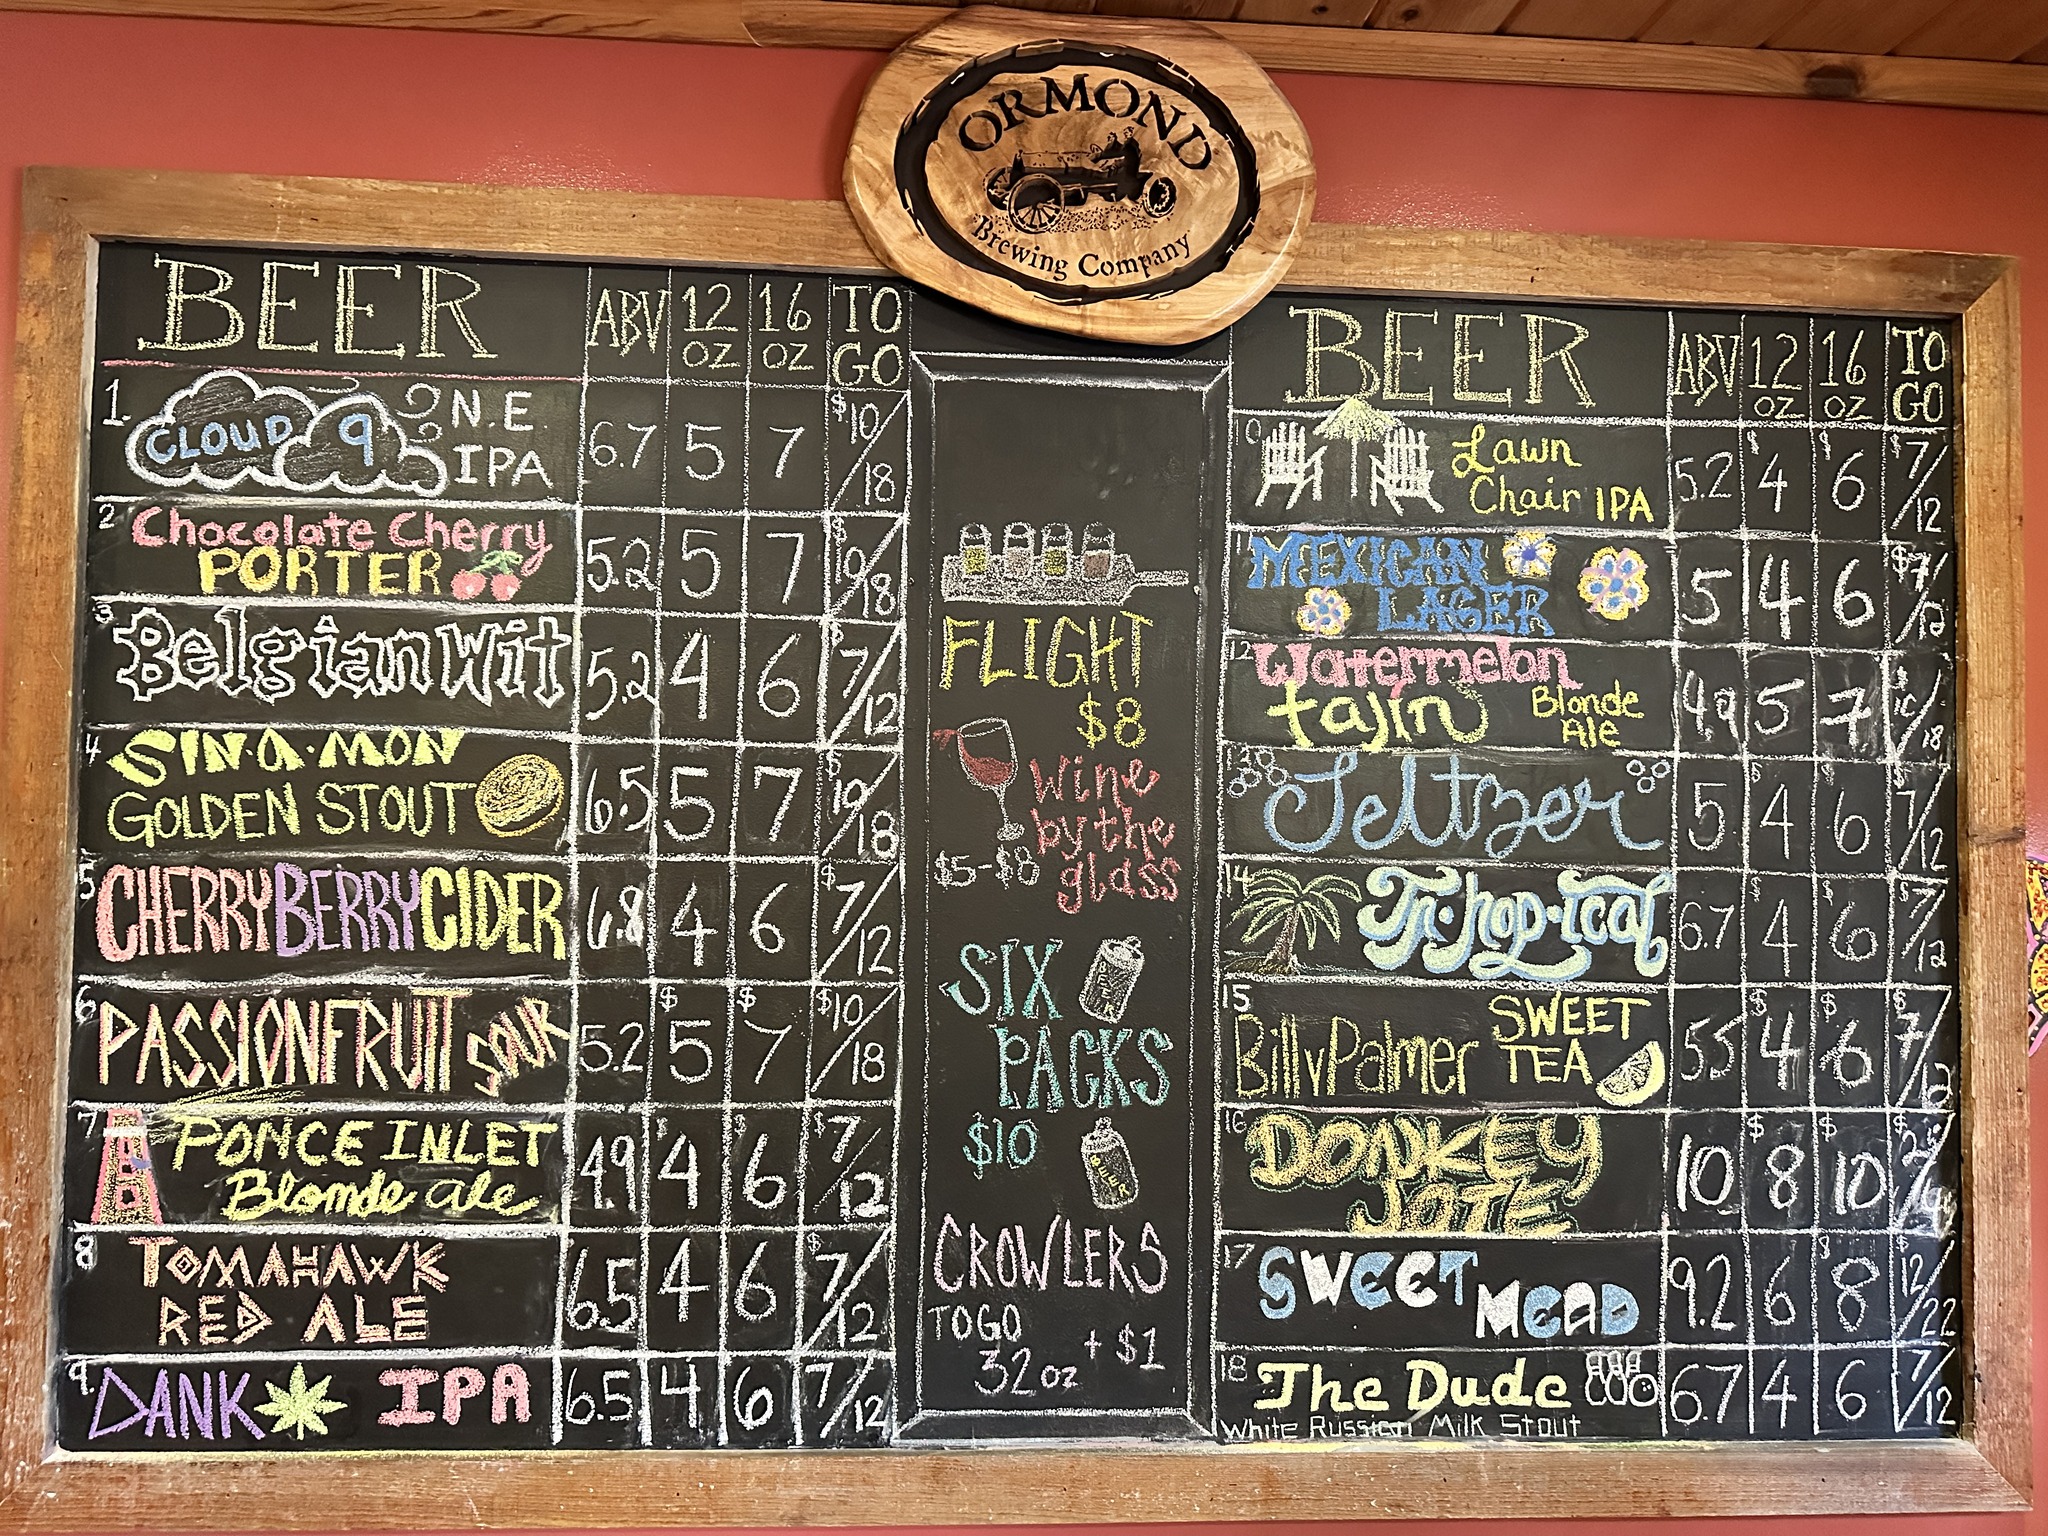 ORMOND
Brewing Company
BEER ABV 12 OZ 16 OZ TO GO
1. CLOUD 9 N.E. IPA 6.7 5 7 $10/18
2 Chocolate Cherry PORTER 5.2 5 7 $10/18
3 Belgian Wit 5.2 4 6 $7/12
4 SIN·A·MON GOLDEN STOUT 6.5 5 7 $10/18
5 CHERRY BERRY CIDER 6.8 4 6 $7/12
6 PASSIONFRUIT SOUR 5.2 $5 $7 $10/18
7 PONCE INLET Blonde ale 4.9 $4 $6 $7/12
8 TOMAHAWK RED ALE 6.5 4 6 $7/12
9. DANK IPA 6.5 4 6 7/12
FLIGHT
$8
Wine
by the
glass
$5-$8
SIX
PACKS
$10
BEER
CROWLERS
TO GO
32 oz + $1
BEER ABV 12 OZ 16 OZ TO GO
10 Lawn Chair IPA 5.2 $4 $6 $7/12
11 MEXICAN LAGER 5 4 6 $7/12
12 Watermelon tajin Blonde Ale 4.9 5 7 $10/18
13 Seltzer 5 $4 6 $7/12
14 Tri·hop·ical 6.7 $4 $6 $7/12
15 Billy Palmer SWEET TEA 5.5 $4 $6 $7/12
16 DONKEY JOTE 10 $8 $10
17 SWEET MEAD 9.2 6 $8 $12/22
18 The Dude 6.7 4 6 7/12
White Russian Milk Stout